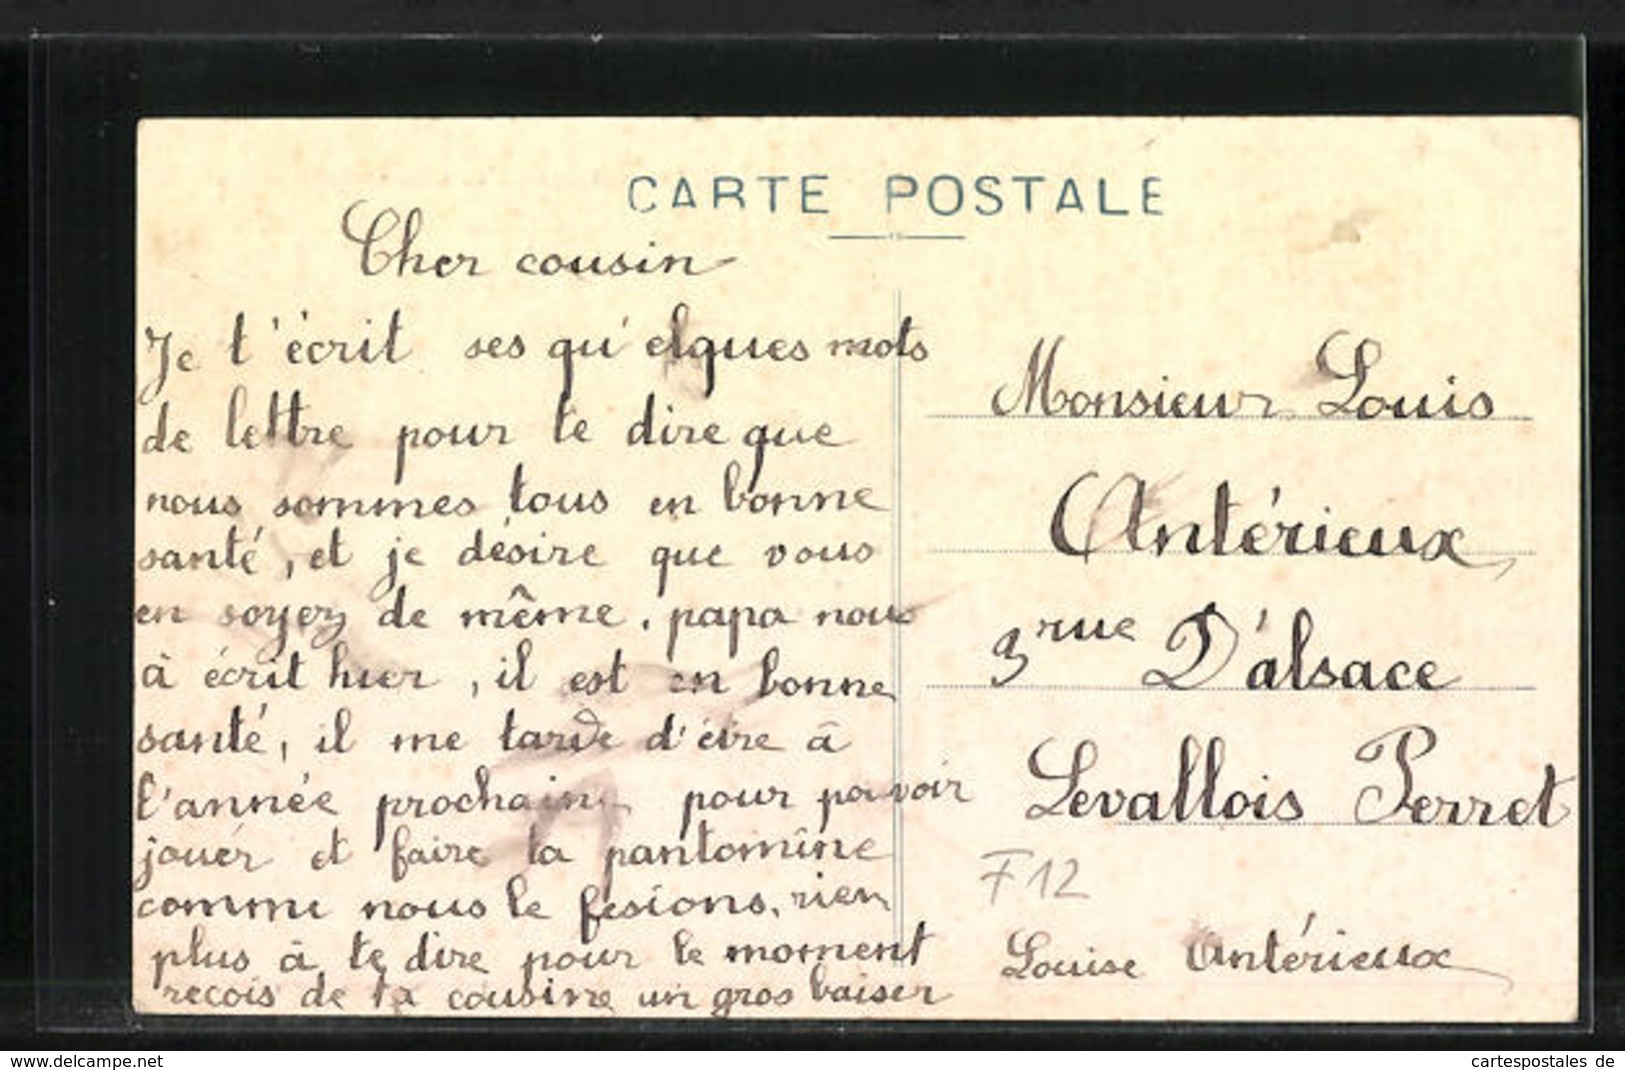 CARTE POSTALE
Cher cousin
Je t'écrit ses qu'elques mots
de lettre pour te dire que
nous sommes tous en bonne
santé, et je désire que vous
en soyez de même. papa nous
à écrit hier, il est en bonne
santé, il me tarde d'être à
l'année prochaine pour pouvoir
jouer et faire la pantomine
comme nous le fesions. rien
plus à te dire pour le moment
recois de ta cousine un gros baiser
Monsieur Louis
Antérieux
3 rue D'alsace
Levallois Perret
F12
Louise Antérieux
www.delcampe.net
cartespostales_de